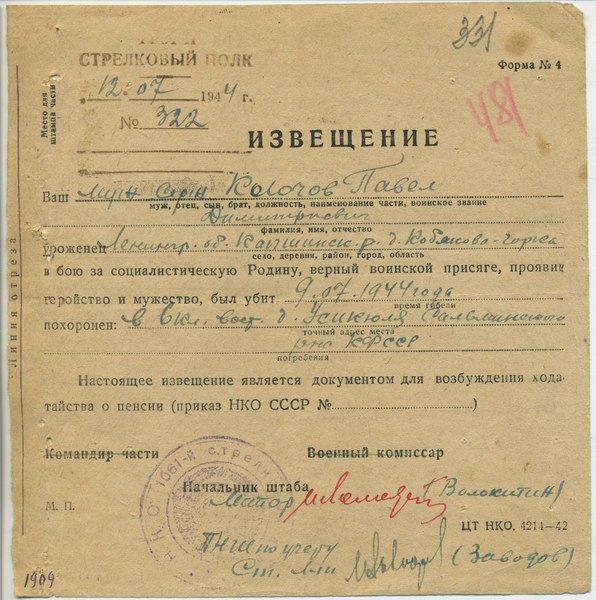 331
СТРЕЛКОВЫЙ ПОЛК
Форма № 4
12 07 1944 г.
Место для
штампа части
№ 322
481
ИЗВЕЩЕНИЕ
Ваш сын Колочов Павел
муж, отец, сын, брат, должность, наименование части, воинское звание
Димитриевич
фамилия, имя, отчество
уроженец Ленингр. об. Капшинск. р. д. Кобяково-горка
село, деревня, район, город, область
в бою за социалистическую Родину, верный воинской присяге, проявив
геройство и мужество, был убит 9.07.1944 года
время гибели
похоронен: в 8 кл. вост. д. Усикюля Салминского
точный адрес места
рна КФССР
погребения
Линия отреза
Настоящее извещение является документом для возбуждения хода-
тайства о пенсии (приказ НКО СССР № )
Командир части Военный комиссар
Н К О 1061-й стрелк
Начальник штаба
М. П.
Майор Волокитин
ЦТ НКО. 4214—42
ПНШ по учету
Ст. л-т (Заводов)
1909